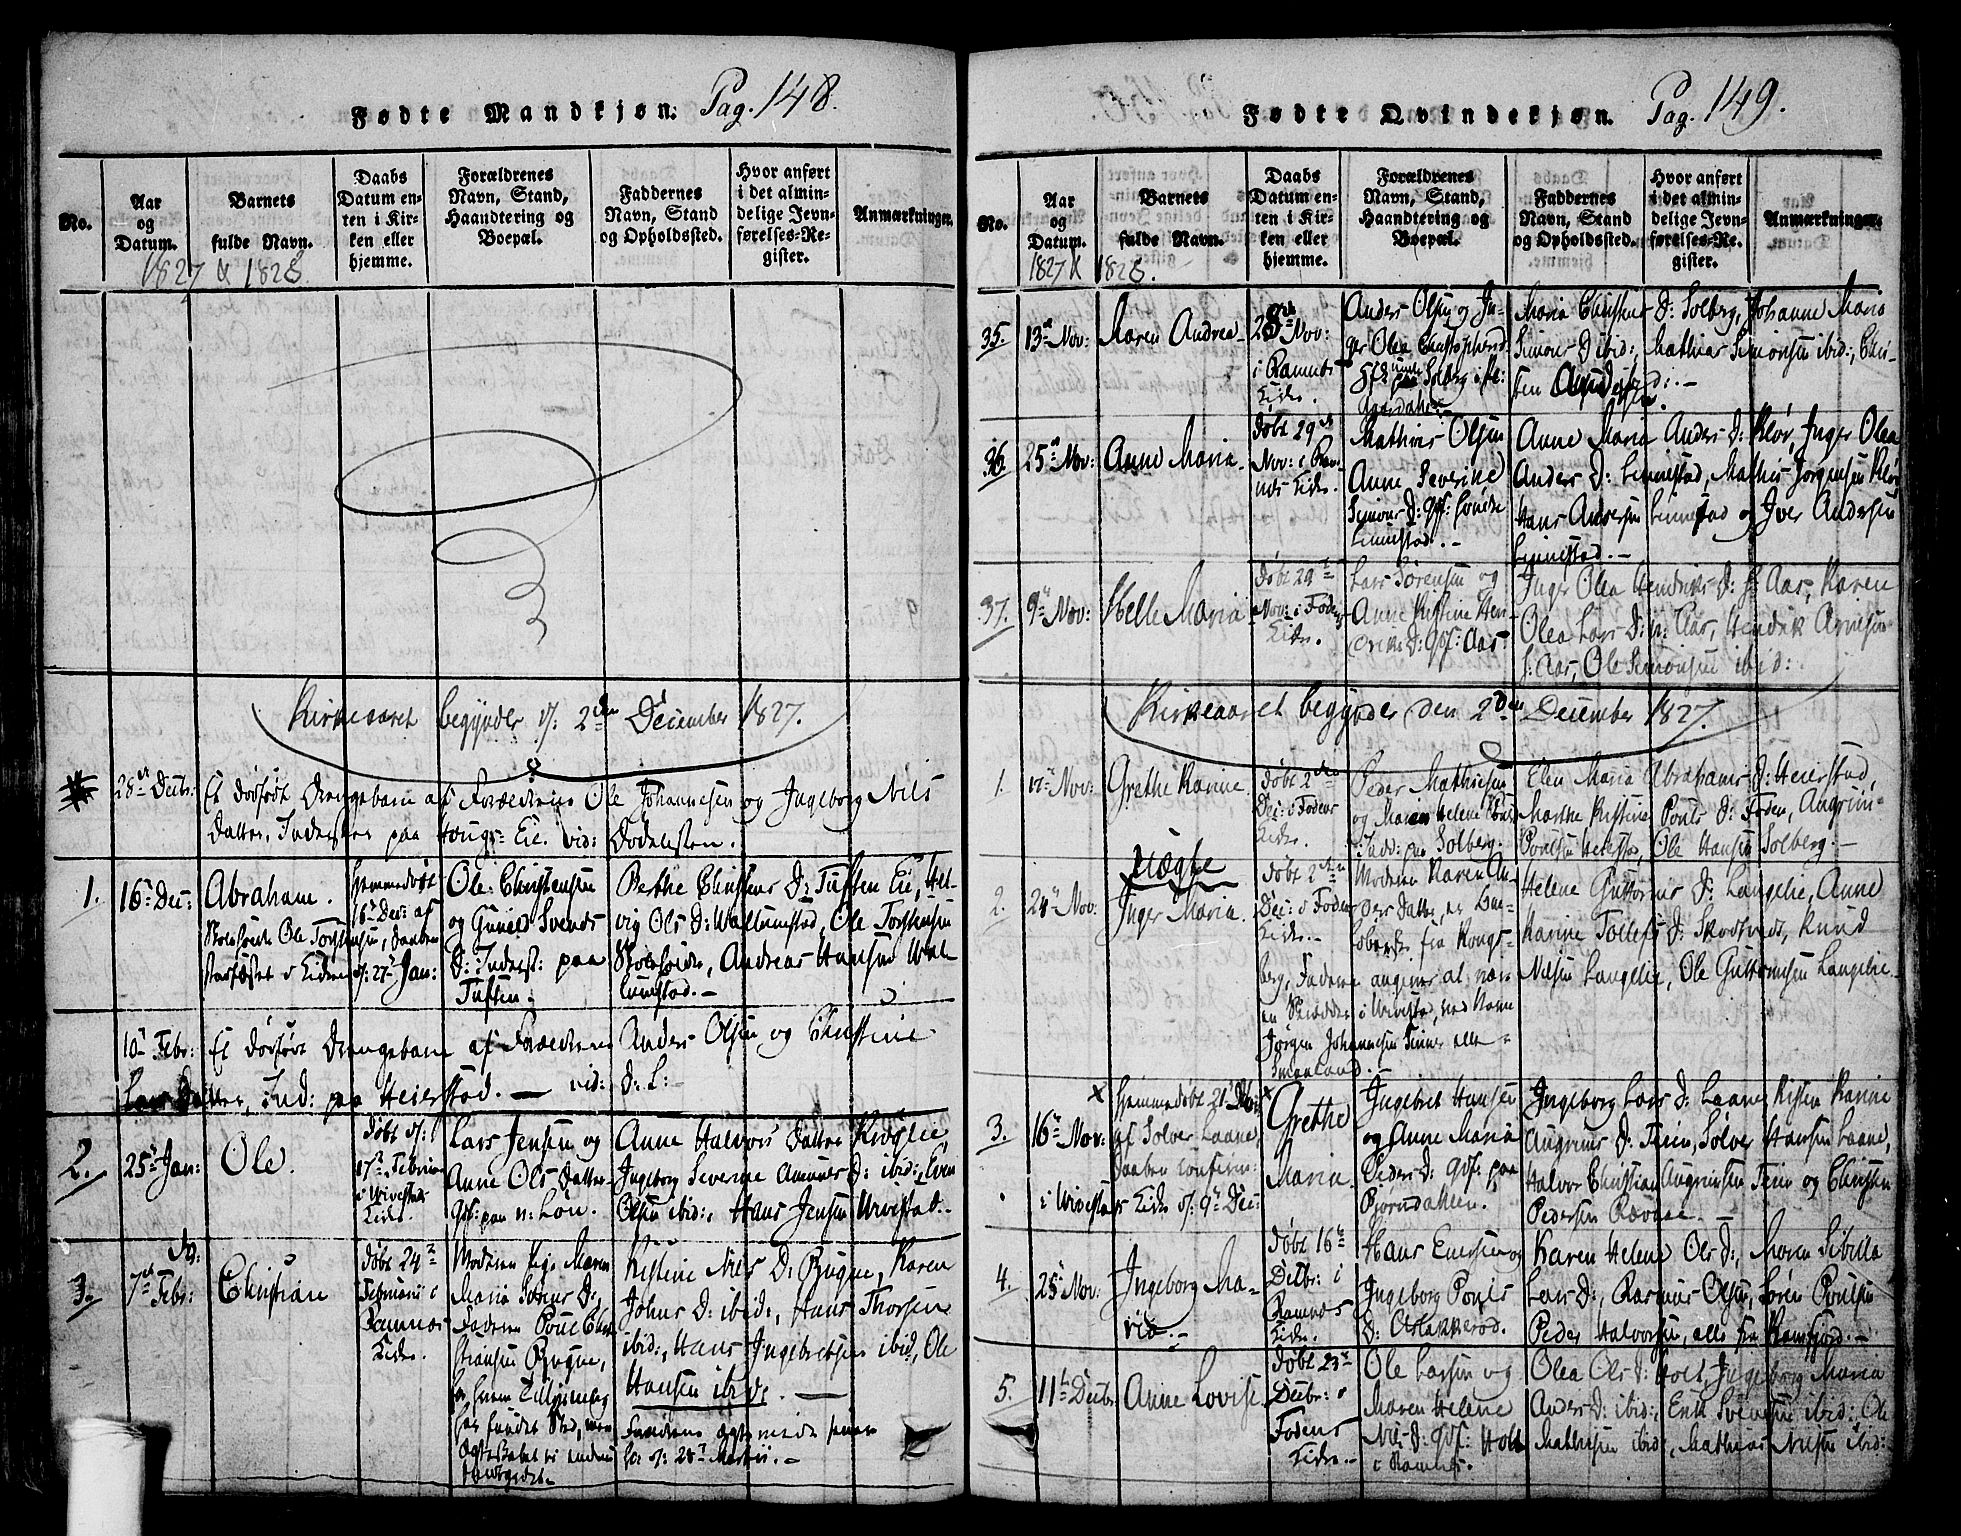 Fødte Mandkjøn. Pag. 148.
No.
Aar
og
Datum.
Barnets
fulde Navn.
Daabs
Datum en-
ten i Kir-
ken eller
hjemme.
Forældrenes
Navn, Stand,
Haandtering og
Boepæl.
Faddernes
Navn, Stand
og Opholdssted.
Hvor anført
i det almin-
delige Jevn-
førelses-Re-
gister.
Anmærkninger.
1827 & 1828
Kirkeaaret begynder d: 2den December 1827.
28de Decbr: Et dødfødt Drengebarn af Forældrene Ole Johannesen og Ingeborg Nils
Datter, Inderster paa Houge Eie. vid: Dødelisten.
1. 16de Dec: Abraham.
Skoleholder Ole Torstensen, Daaben
stadfæstet i Kirken d: 27de Jan:
Hjemmedøbt
16de Dec: af
Ole Christensen
og Gunild Svends
D: Inderst: paa
Tuften.
Berthe Christens D: Tuften Eie, Hel-
vig Ols D: Wallumstad, Ole Torstensen
Skoleholder, Andreas Hansen Wal-
lumstad.-
10de Febr: Et dødfødt Drengebarn af Forældrene Anders Olsen og Christine
Lars Datter, Ind: paa Heierstad. — vid: D: L:
2. 25de Jan: Ole.
Døbt d:
17de Februar
i Urvestad
Kirke.
Lars Jensen og
Anne Ols Datter
Gbf: paa n: Løn.
Anne Halvors Datter Kroglie,
Ingeborg Severine Ammunds D: ibid:, Even
Olsen ibid:, Hans Jensen Urvestad.-
3. 7de Febr: Christian
Døbt 24de
Februarii i
Ramnæs
Kirke.
Moderen Pige Maren
Maria Sørens D:
Faderen Poul Chri-
stiansen Bugne,
Kistine Nils D: Bugne, Karen
Johns D: ibid:, Hans Thorsen
ibid:, Hans Ingebretsen ibid:, Ole
Hansen ibid:. —
Fødte Qvindekjøn. Pag. 149.
No.
Aar
og
Datum.
Barnets
fulde Navn.
Daabs
Datum en-
ten i Kir-
ken eller
hjemme.
Forældrenes
Navn, Stand,
Haandtering og
Boepæl.
Faddernes
Navn, Stand
og Opholdssted.
Hvor anført
i det almin-
delige Jevn-
førelses-Re-
gister.
Anmærkninger.
1827 & 1828.
35. 13de Nov: Maren Andrea
28de Nov:
i Ramnes
Kirke.
Anders Olsen og In-
ger Olea Christophersd:
Maria Christens D: Solberg, Johanne Maria
Simons D: ibid:, Mathias Simonsen ibid:, Chri-
36. 25de Nov: Anne Maria.
Døbt 29de
Nov: i Ram-
næs Kirke.
Mathis Olsen
Anne Severine
Simons D: Gbf: søndre
Linnestad.-
Anne Maria Anders D: Kløv, Inger Olea
Anders D: Linnestad, Mathis Jørgensen Kløv
Hans Andersen Linnestad og Iver Andersen
Linnestad.-
37. 9de Nov: Helle Maria
Døbt 29de
Nov: i Fodens
Kirke.
Lars Sørensen og
Anne Kistine Hen-
driks D: Gbf: Aas
Inger Olea Hendriks D: s: Aas, Karen
Olea Lars D: n: Aas, Hendrik Arnesen
s: Aas, Ole Simonsen ibid:
Kirkeaaret begynder den 2den December 1827.
1. 17de Nov: Grethe Karine.
Døbt 2den
Dec: i Fodens
Kirke.
Peder Mathisen
og Maren Helene
Ind: paa Solberg.
Elen Maria Abrahams D: Heierstad
Marthe Kistine Pouls D: Foden, Angrim
Poulsen Heierstad, Ole Hansen Solberg.-
2. 24de Nov:
Uægte
Inger Maria.
Døbt 2den
Dec: i Fodens
Kirke.-
Moderen Karen An-
ders Datter, er Løs-
fra Kongs-
berg, Faderen angives at være
en Skrædder i Urvestad, ved Navn
Jørgen Johannesen Finnes eller
Smaaland.
Helene Guttorms D: Langelie, Anne
Karine Tollefs D: Skodtvedt, Knud
Nilsen Langelie, Ole Guttormsen Langelie.
3. 16de Nov:
Hjemmedøbt 21de Nov:
af Solver Laane,
Daaben confirm:
i Urvestads Kirke d: 9de Dec:
Grethe
Maria.
Ingebret Hansen
og Anne Maria
Peders D: Gbf: paa
Bjørndahlen.
Ingeborg Lars D: Laane Kisten Karine
Augrims D: Feen, Solver Hansen Laane,
Halvor Christian Augrimsen Feen og Christen
Pedersen Rævaae.-
4. 25de Nov: Ingeborg Ma-
ria.-
Døbt 16de
Decbr: i
Ramnæs
Kirke.
Hans Evensen og
Ingeborg Pouls
D: Aslakkerød.
Karen Helene Ols D:, Maren Sibilla
Lars D:, Rasmus Olsen, Søren Poulsen
Peder Halvorsen, alle fra Ramfjord.-
5. 11te Decbr: Anne Lovise.
Døbt 23de
Decbr: i
Fodens
Kirke.-
Ole Larsen og
Maren Helene
Nils D: Gbf: Holt
i Ramnæs.
Olea Ols D: Holt, Ingeborg Maria
Anders D: ibid:, Erik Svensen ibid:, Ole
Mathisen ibid:, Mathias Nilsen ibid: